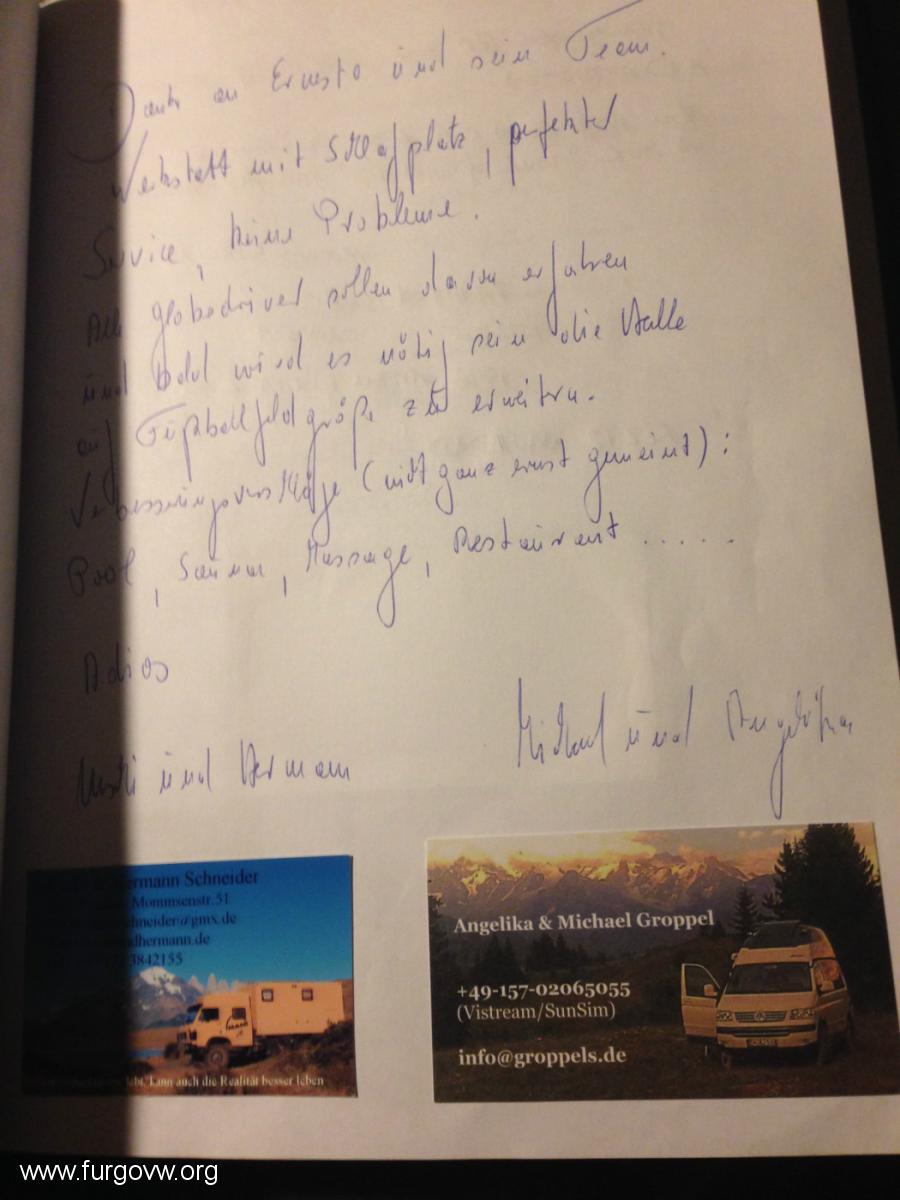 Dank an Ernesto und sein Team.
Werkstatt mit Schlafplatz, perfekter
Service, keine Probleme.
Alle Globedriver sollen davon erfahren
und bald wird es nötig sein die Halle
auf Fußballfeldgröße zu erweitern.
Verbesserungsvorschläge (nicht ganz ernst gemeint):
Pool, Sauna, Massage, Restaurant .....
Adios
und Hermann
Michael und Angelika
ermann Schneider
Mommsenstr.51
hneider@gmx.de
dhermann.de
3842155
lebt, kann auch die Realität besser leben
Angelika & Michael Groppel
+49-157-02065055
(Vistream/SunSim)
info@groppels.de
www.furgovw.org